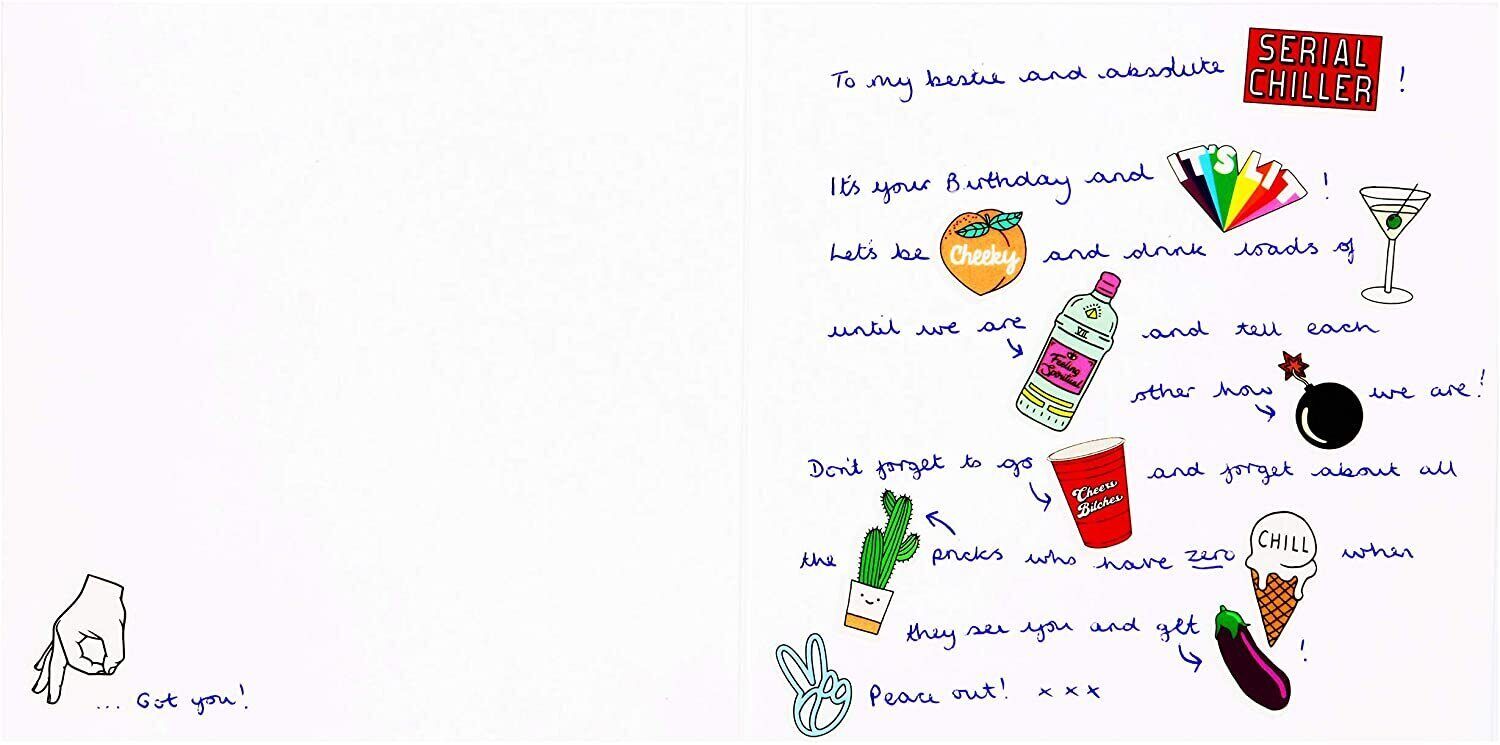 To my bestie and absolute SERIAL CHILLER !
It's your Birthday and IT'S LIT !
Let's be Cheeky and drink loads of
until we are VII Feeling Spiritual and tell each
other how we are!
Don't forget to go Cheers Bitches and forget about all
the pricks who have zero CHILL when
they see you and get !
Peace out! x x x
... Got you!